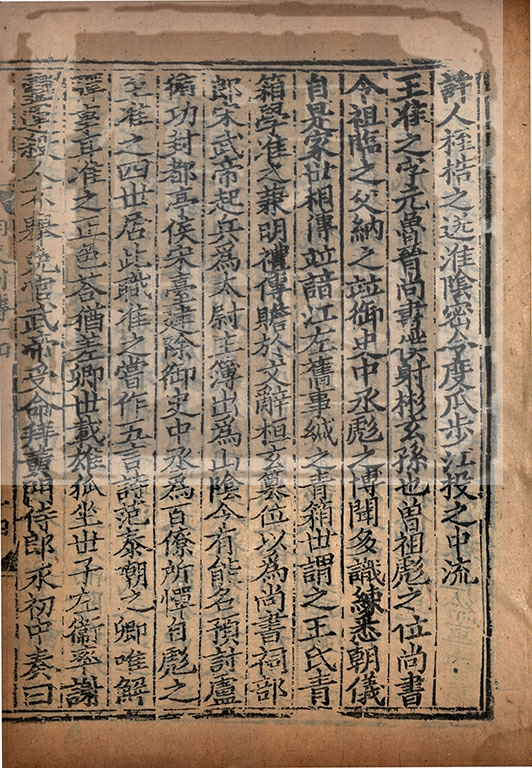 詩人桎梏之送淮陰密令度瓜步江投之中流
王准之字元魯晉尚書僕射彬玄孫也曽祖彪之位尚書
令祖臨之父納之並御史中丞彪之博聞多識練悉朝儀
自是家世相傳並諳江左舊事緘之青箱世謂之王氏青
箱學准之兼明禮傳贍於文辭桓玄簒位以為尚書祠部
郎宋武帝起兵為太尉主簿出為山陰令有能名預討盧
循功封都亭侯宋臺建除御史中丞為百僚所憚自彪之
至准之四世居此職准之嘗作五言詩范泰嘲之卿唯解
彈事耳准之正色荅猶差卿世載雄狐坐世子左衞率謝
靈運殺人不舉免官武帝受命拜黄門侍郎永初中奏曰